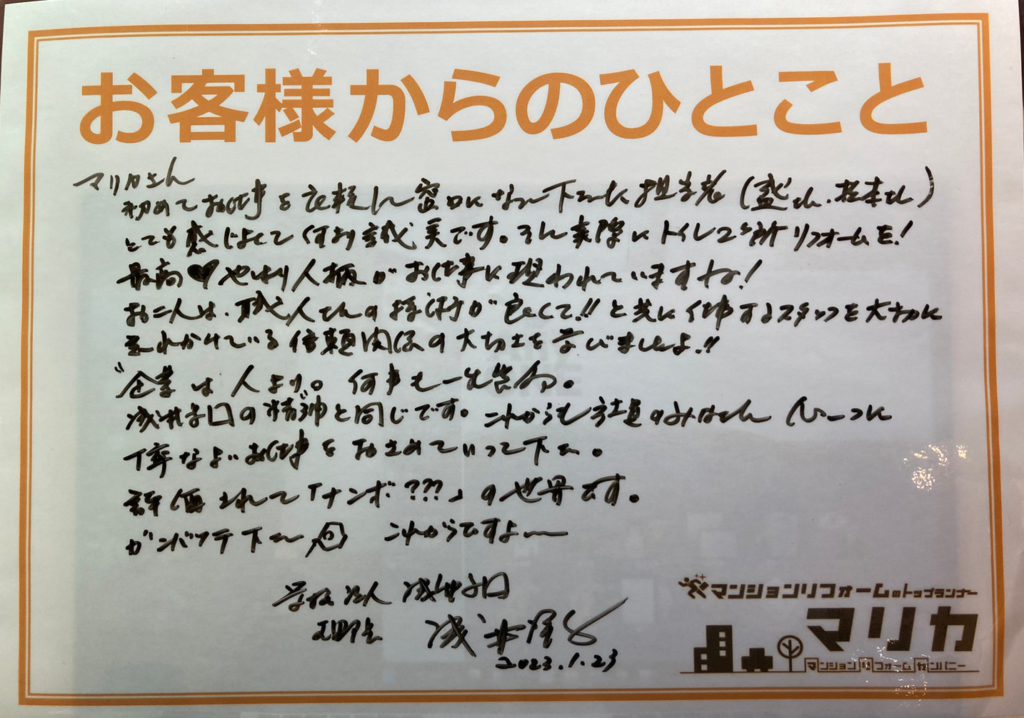 お客様からのひとこと
マリカさん
初めてお仕事を依頼し窓口になって下さった担当者(盛さん、松本さん)
とても感じよくて何より誠実です。そして実際にトイレ2ヶ所リフォームを!
最高♥やはり人柄がお仕事に現われていますね!
お二人は、職人さんの技術が良くて!!と共に仕事するスタッフを大切に
されている信頼関係の大切さを学びましたよ!!
"企業は人より"。何事も一生懸命。
浅井学園の精神と同じです。これからも社員のみなさん心一つに
丁寧なよいお仕事をおさめていって下さい。
評価されて「ナンボ???」の世界です。
ガンバッテ下さい これからですよ〜
学校法人 浅井学園
理事長 浅井
2023.1.23
マンションリフォームのトップランナー
マリカ
マンションリフォームカンパニー